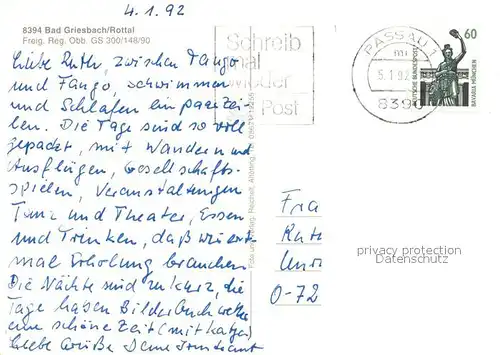 4.1.92
8394 Bad Griesbach/Rottal
Freig. Reg. Obb. GS 300/148/90
Liebe Ruth, zwischen Tango
und Fango, schwimmen
und Schlafen ein paar Zei-
len. Die Tage sind so voll
gepackt, mit Wandern und
Ausflügen, Gesellschafts-
spielen, Veranstaltungen
Tanz und Theater, Essen
und Trinken, daß wir erst
mal Erholung brauchen
Die Nächte sind zu kurz, die
Tage haben Bilderbuchwetter
eine schöne Zeit (mit Katzen)
Liebe Grüße Deine
Schreib
mal
wieder
Post
PASSAU 1
mu
5.1.92
8390
60
DEUTSCHE BUNDESPOST
BAVARIA MÜNCHEN
Fra
Rat
0-72
privacy protection
Datenschutz